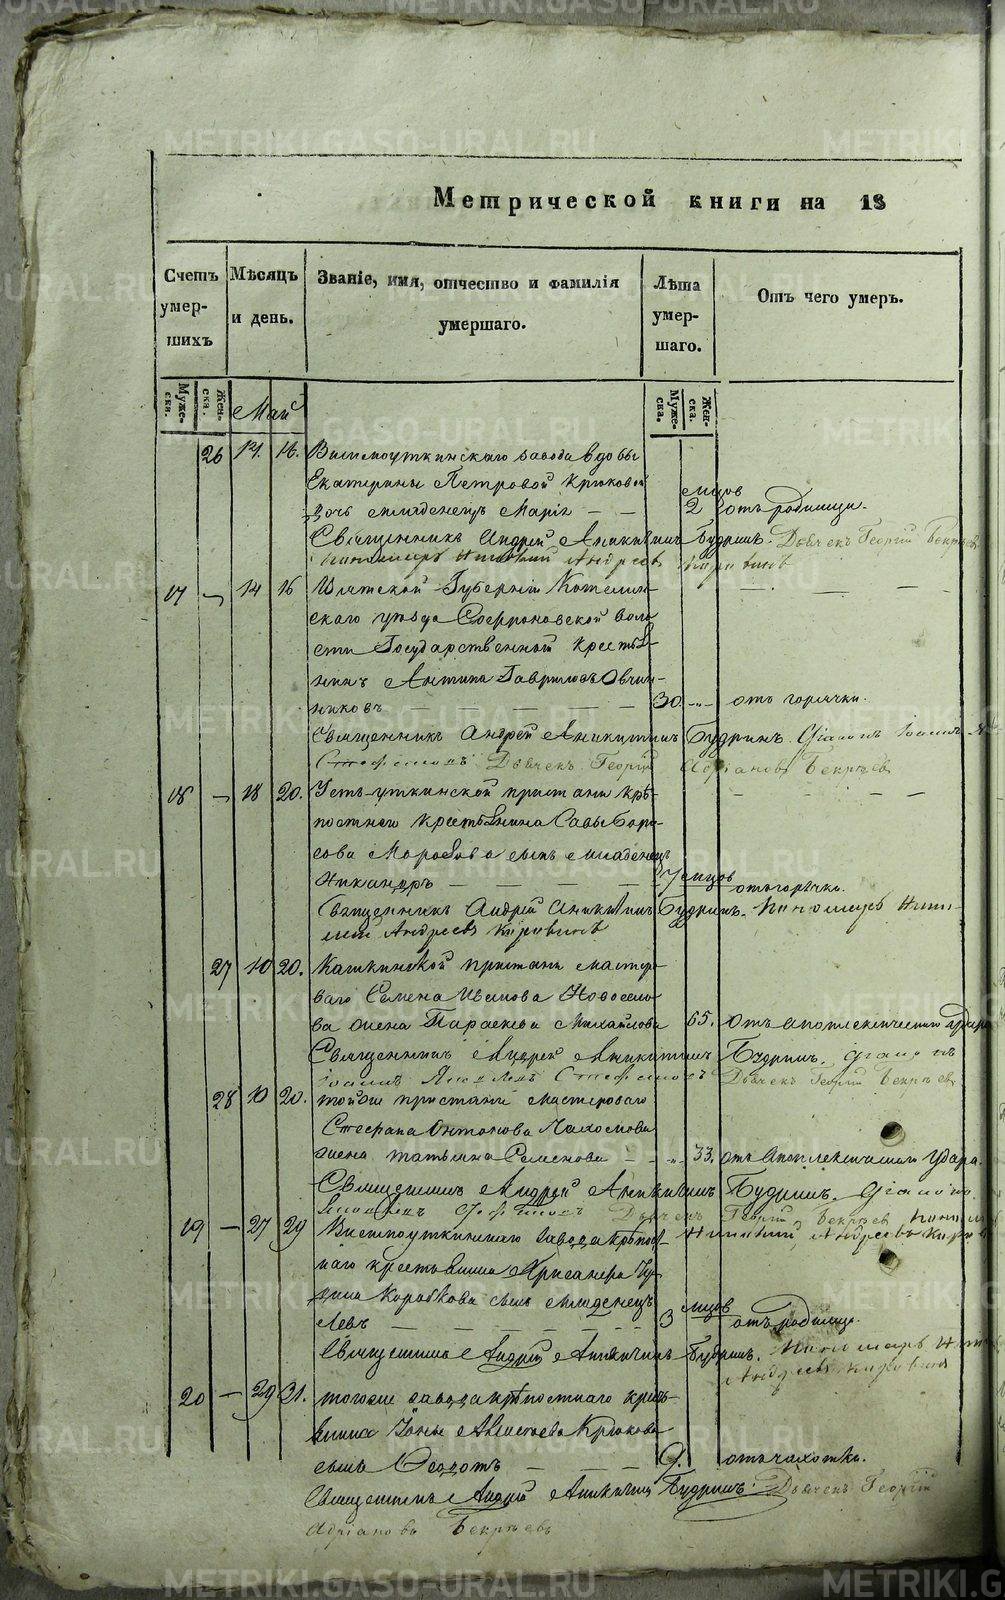 Метрической книги на 18
Счетъ умер- шихъ
Мѣсяцъ и день.
Званіе, имя, отчество и фамилія умершаго.
Лѣта умер- шаго.
Отъ чего умеръ.
Муже- ска.
Жен- ска.
Май
Муже- ска.
Жен- ска.
26 14. 16. Висимоуткинскаго завода вдовы
Екатерины Петровой Крюковой
дочь младенецъ Марія — — 2 мѣсцов отъ родимца.
Священникъ Андрей Аникитинъ Будринъ. Дьячекъ Георгій Бекрѣев
Пономарь Андреевъ
17 — 14 16 Вятской Губерніи Котельни-
скаго уѣзда воло
сти Государственный крестья-
нинъ Антипа Гавриловъ Овчин-
никовъ — — — — — 30 — отъ горячки.
Священникъ Андрей Аникитинъ Будринъ. Діаконъ Іоаннъ
Дьячекъ Георгій Адріановъ Бекрѣевъ
18 — 18 20. Усть-уткинской пристани крѣ-
постнаго крестьянина Савы Бори-
сова сынъ младенецъ
Никандръ — — — — 7 мѣсцов отъ горячки.
Священникъ Андрей Аникитинъ Будринъ. Пономарь
Андреевъ
27 18 20. Кашкинской пристани мастеро-
ваго Семена Иванова Новосело-
ва жена Параскева Михайлова 65. отъ апоплексическаго удара
Священникъ Андрей Аникитинъ Будринъ. Діаконъ
Іоаннъ Дьячекъ Георгій Бекрѣевъ
28 18 20. той же пристани мастероваго
Стефана Антонова
жена татьяна Семенова — — 33. отъ Апоплексическаго удара.
Священникъ Андрей Аникитинъ Будринъ. Діаконъ
Дьячекъ Георгій Бекрѣев
19 — 27 29 Висимоуткинскаго завода крѣпост-
наго крестьянина
Коробкова сынъ младенецъ
Левъ — — — — — 3 мѣсцов отъ родимца.
Священникъ Андрей Аникитинъ Будринъ. Пономарь
Андреевъ
20 — 29 31. того же завода крѣпостнаго кресть-
янина Іоны Крюкова
сынъ Федотъ — — — 9. отъ чахотки.
Священникъ Андрей Аникитинъ Будринъ. Дьячекъ Георгій
Адріановъ Бекрѣевъ
METRIKI.GASO-URAL.RU